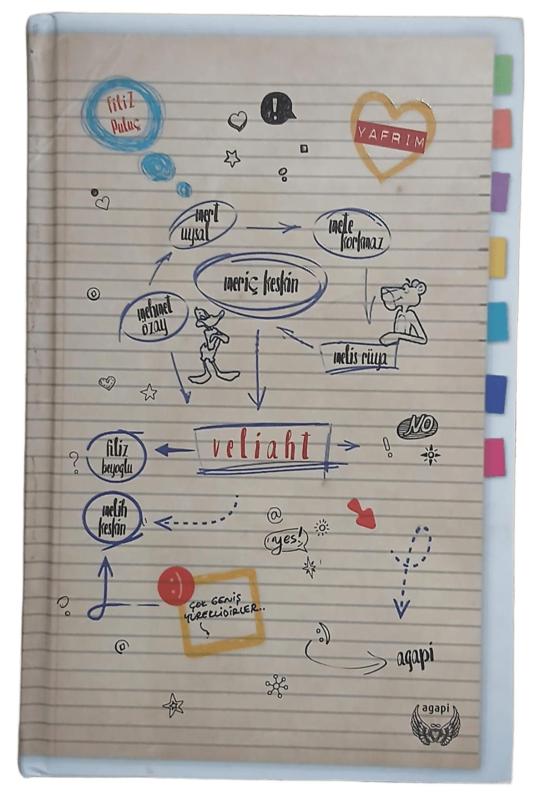 filiz
puluç
!
YAFRIM
mert
uysal
mete
korkmaz
meriç keskin
mehmet
özay
melis rüya
veliaht
NO
filiz
beyoğlu
?
!
melih
keskin
@
yes!
ÇOK GENİŞ
YÜREKLİDİRLER..
?
@
agapi
agapi